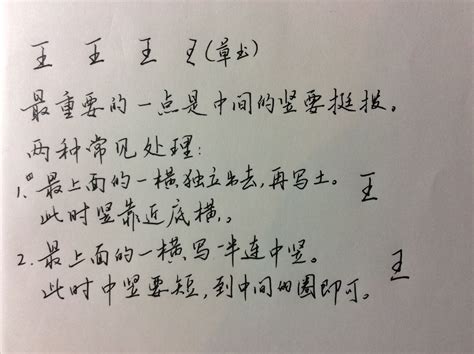 王 王 王 王(草书)
最重要的一点是中间的竖要挺拔。
两种常见处理:
1. 最上面的一横独立出去,再写土。 王
此时竖靠近底横。
2. 最上面的一横写一半连中竖。
此时中竖要短,到中间的圈即可。 王